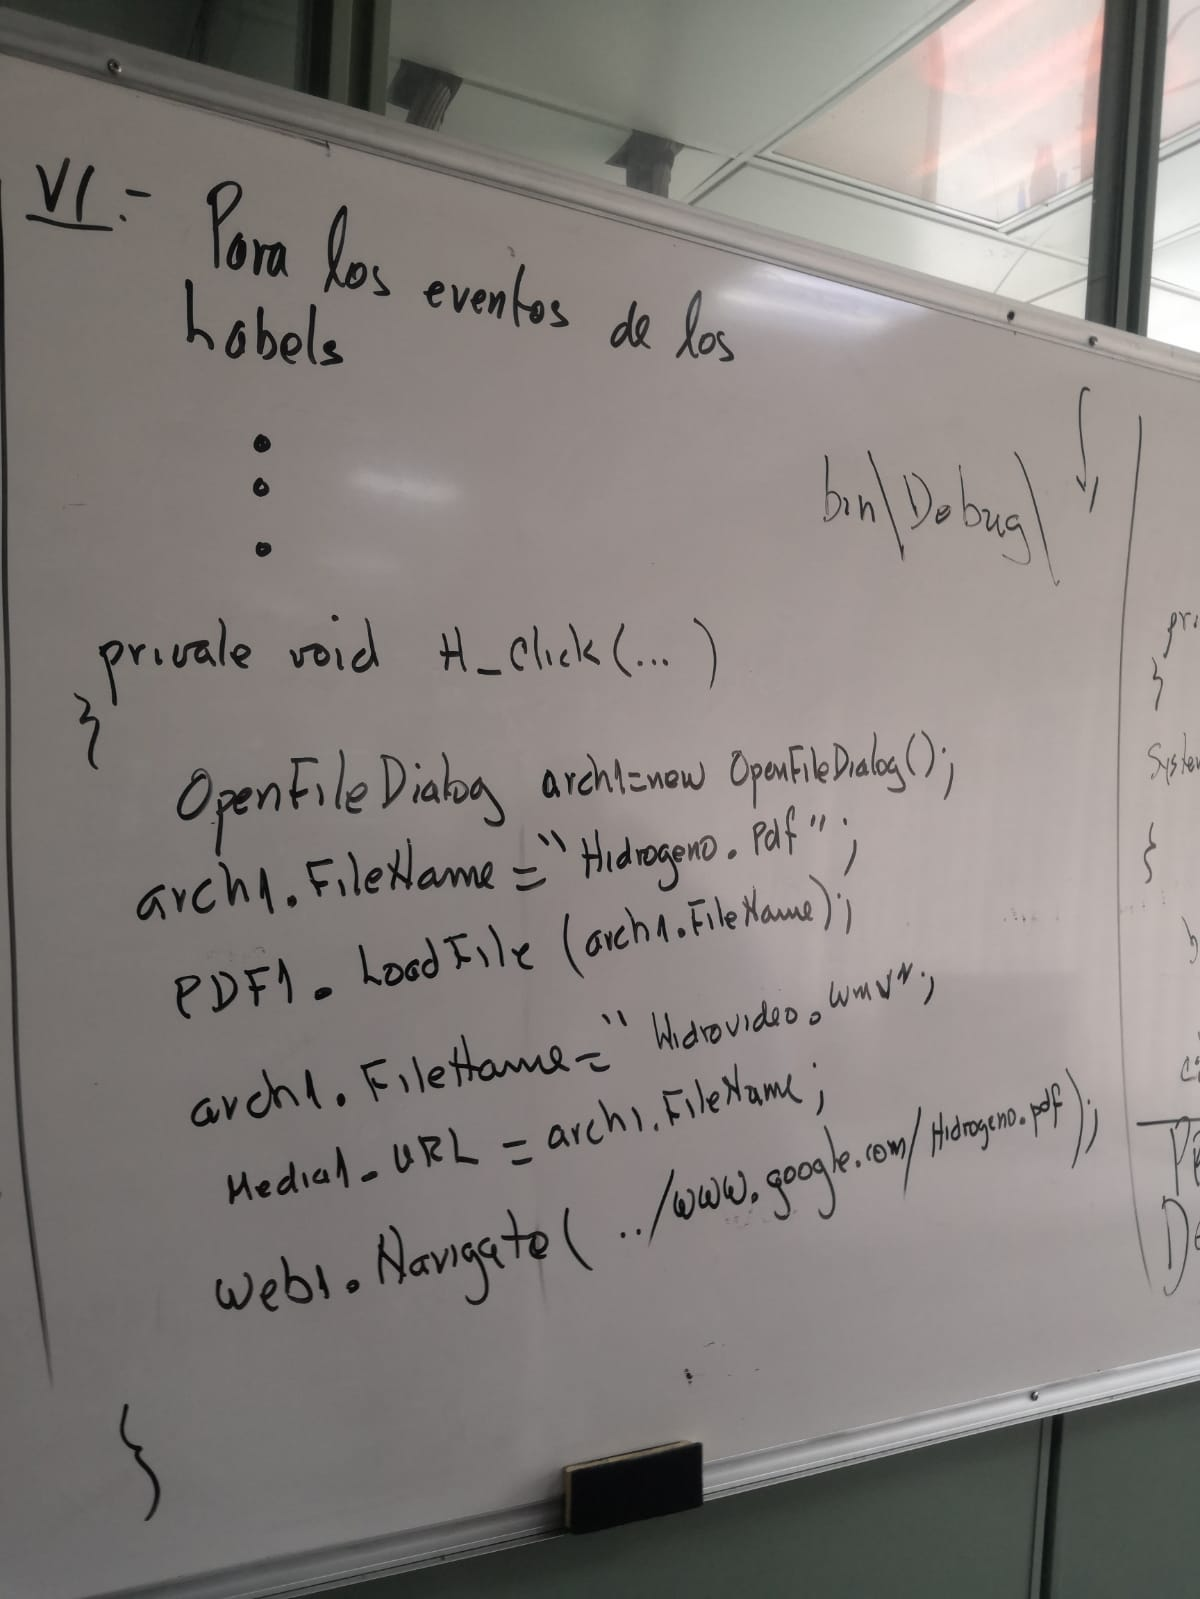 VI.- Para los eventos de los
Labels
bin\Debug\
private void H_Click(...)
{
OpenFileDialog arch1=new OpenFileDialog();
arch1.FileName="Hidrogeno.Pdf";
PDF1.LoadFile(arch1.FileName);
arch1.FileName="Hidrovideo.wmv";
Media1.URL=arch1.FileName;
web1.Navigate(../www.google.com/Hidrogeno.pdf);
}
pri
{
System
}